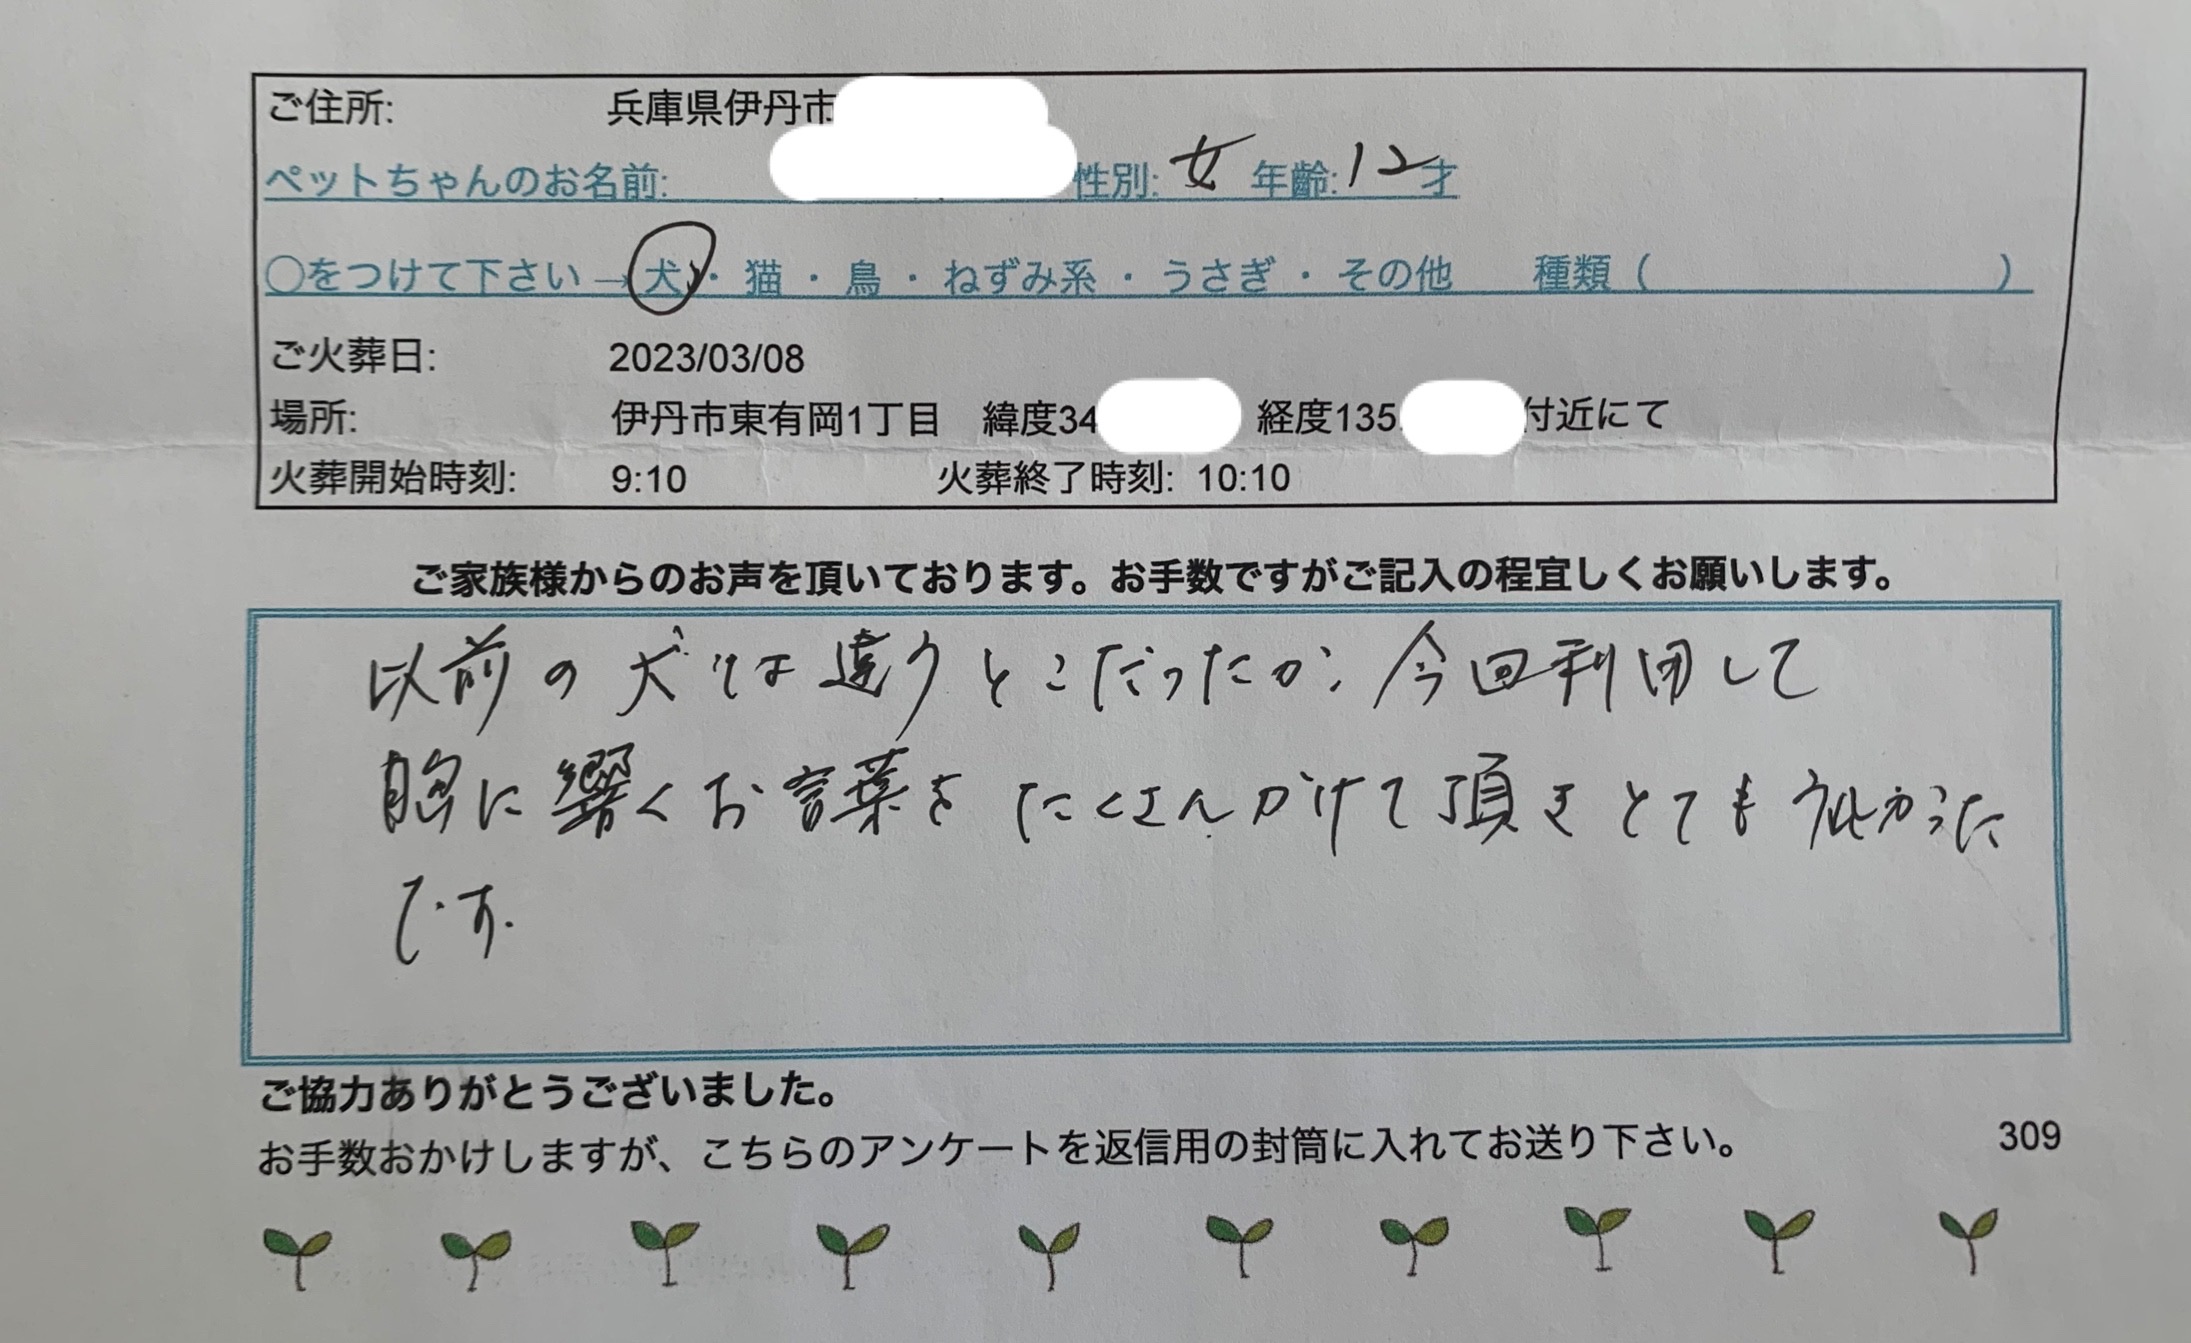 ご住所: 兵庫県伊丹市
ペットちゃんのお名前: 性別: 女 年齢: 12才
○をつけて下さい→犬・猫・鳥・ねずみ系・うさぎ・その他 種類( )
ご火葬日: 2023/03/08
場所: 伊丹市東有岡1丁目 緯度34 経度135. 付近にて
火葬開始時刻: 9:10 火葬終了時刻: 10:10
ご家族様からのお声を頂いております。お手数ですがご記入の程宜しくお願いします。
以前の犬は違うとこだったが、今回利用して
胸に響くお言葉をたくさんかけて頂きとてもうれしかった
です.
ご協力ありがとうございました。
お手数おかけしますが、こちらのアンケートを返信用の封筒に入れてお送り下さい。 309